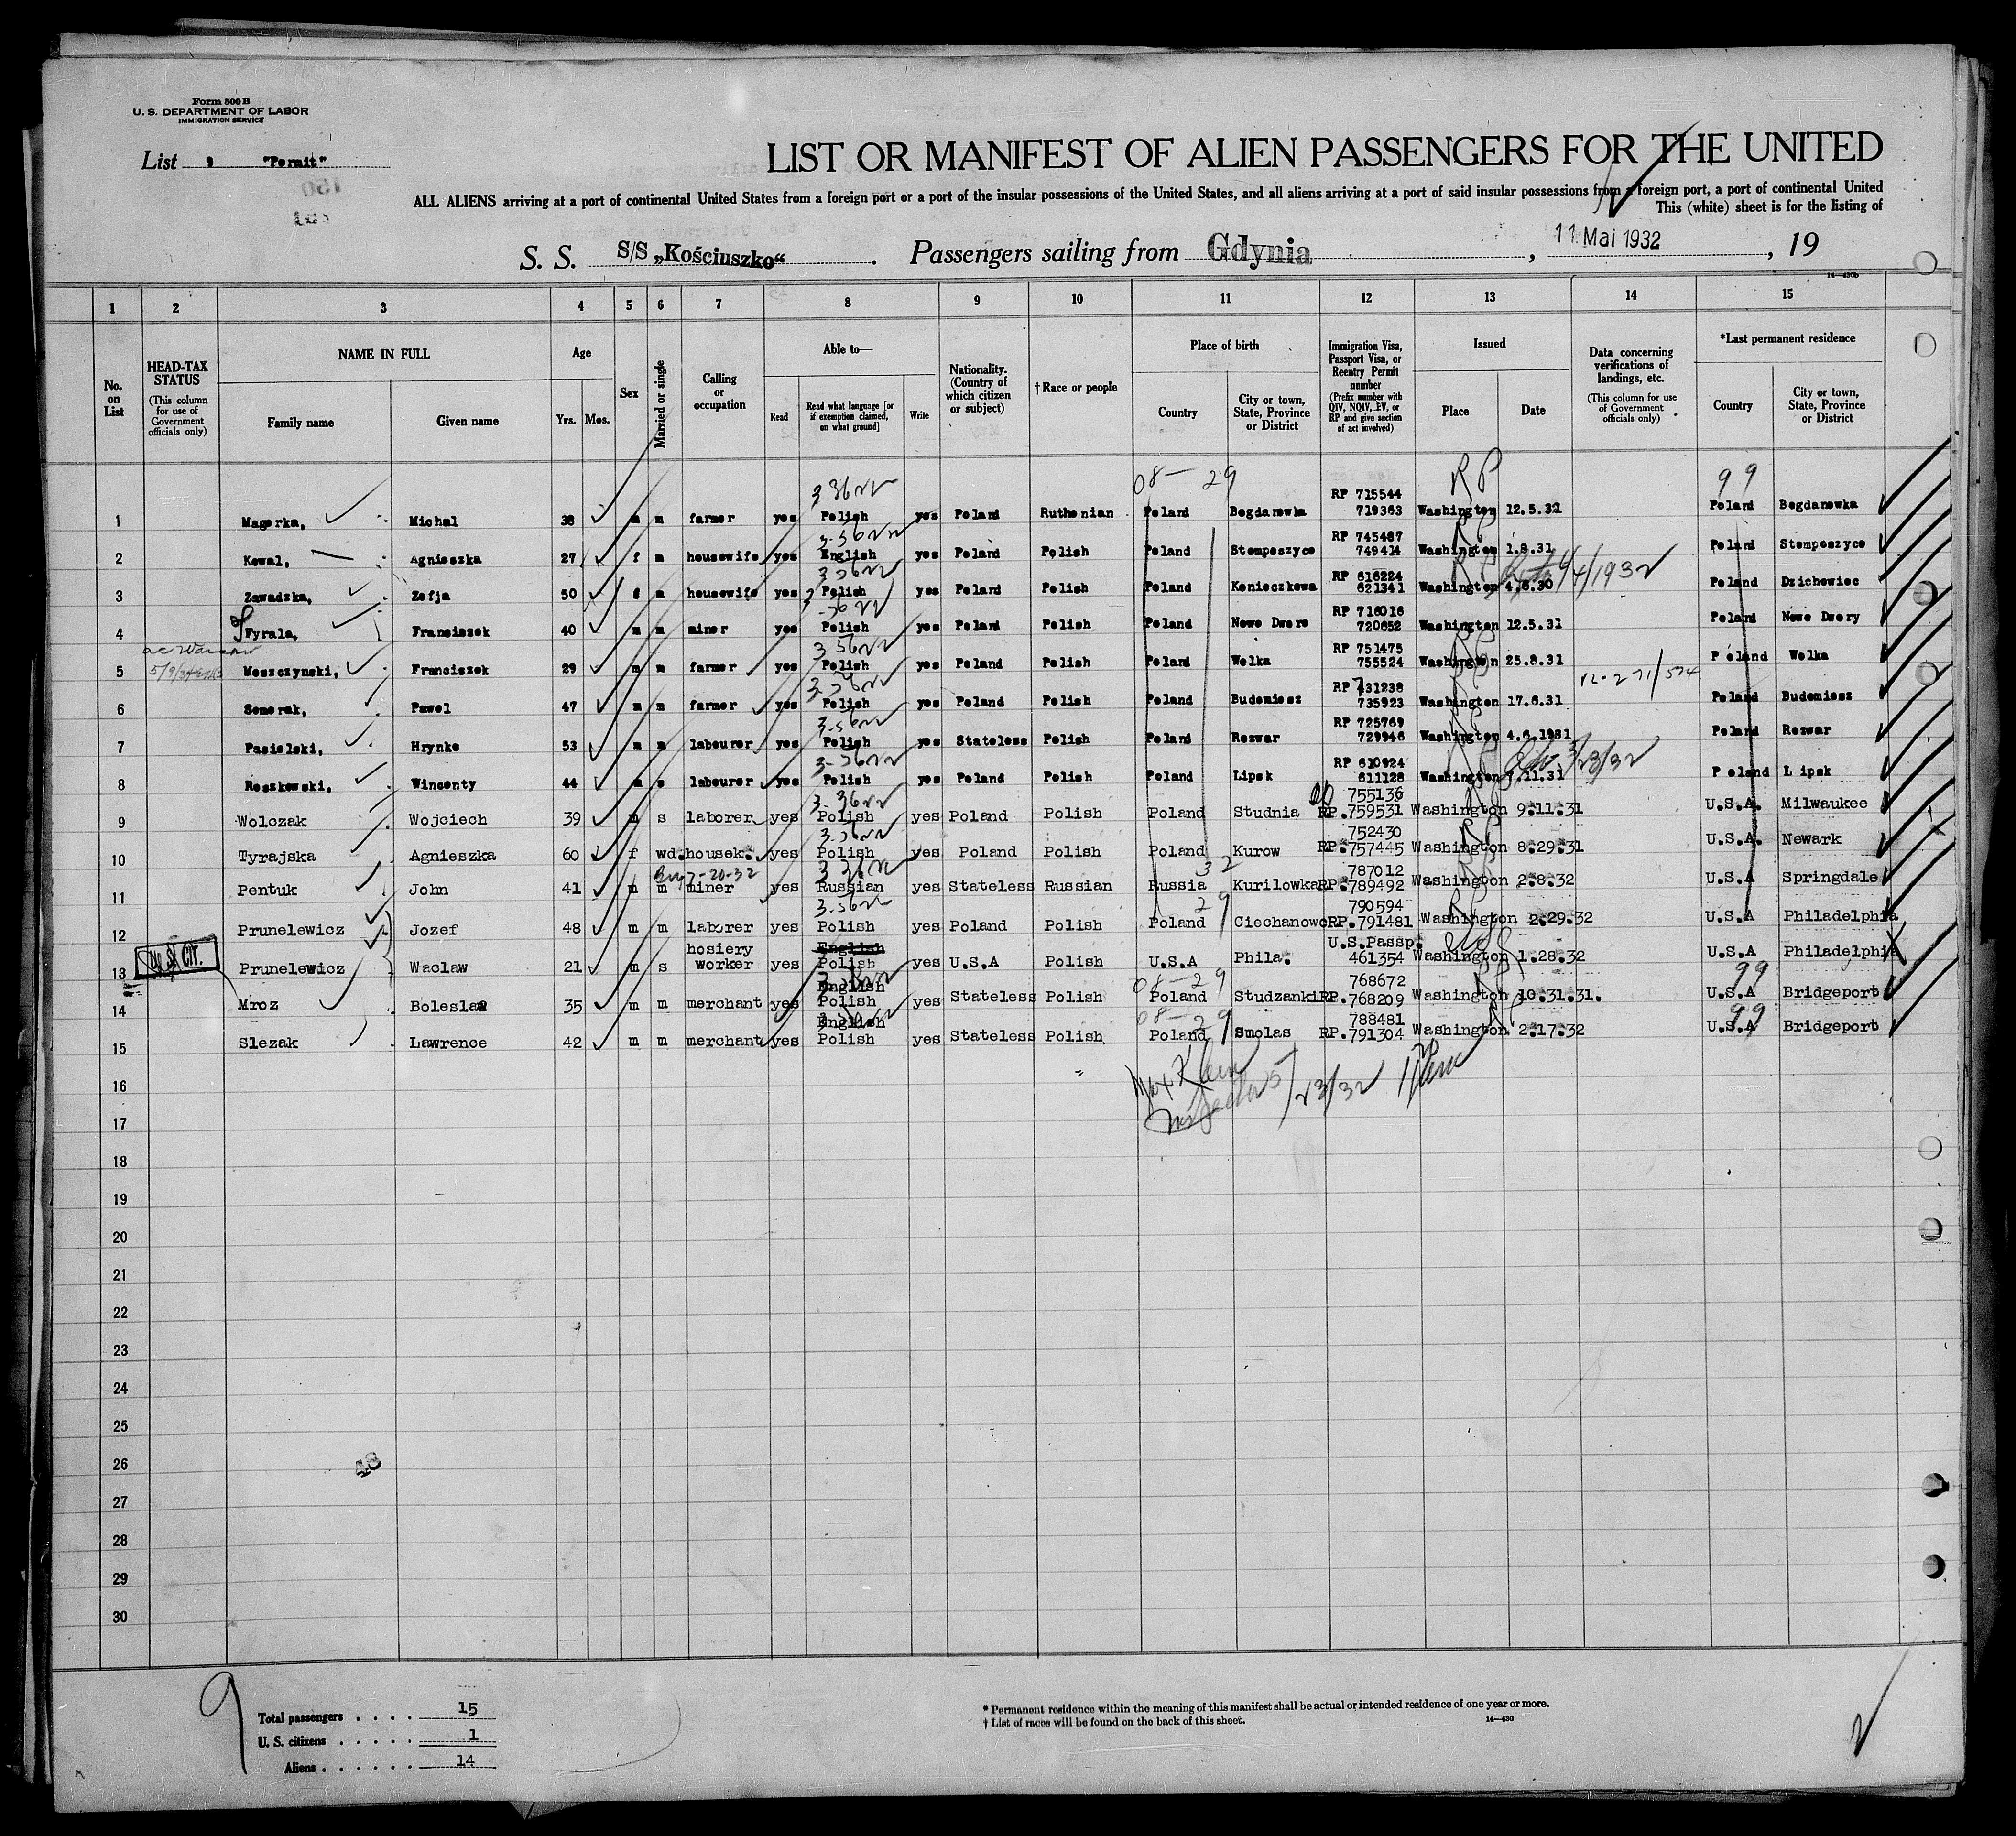 Form 500 B
U. S. DEPARTMENT OF LABOR
IMMIGRATION SERVICE
List 9 "Permit"
150
LIST OR MANIFEST OF ALIEN PASSENGERS FOR THE UNITED
ALL ALIENS arriving at a port of continental United States from a foreign port or a port of the insular possessions of the United States, and all aliens arriving at a port of said insular possessions from a foreign port, a port of continental United
This (white) sheet is for the listing of
S. S. S/S „Kościuszko“ . Passengers sailing from Gdynia , 11. Mai 1932 , 19
14—430b
1 2 3 4 5 6 7 8 9 10 11 12 13 14 15
No. on List
HEAD-TAX STATUS
(This column for use of Government officials only)
NAME IN FULL
Family name Given name
Age
Yrs. Mos.
Sex
Married or single
Calling or occupation
Able to—
Read
Read what language [or if exemption claimed, on what ground]
Write
Nationality. (Country of which citizen or subject)
† Race or people
Place of birth
Country
City or town, State, Province or District
Immigration Visa, Passport Visa, or Reentry Permit number
(Prefix number with QIV, NQIV, PV, or RP and give section of act involved)
Issued
Place Date
Data concerning verifications of landings, etc.
(This column for use of Government officials only)
*Last permanent residence
Country
City or town, State, Province or District
08— 29 RP 99
1 Magerka, Michal 38 m m farmer yes Polish yes Poland Ruthenian Poland Bogdanowka RP 715544 719363 Washington 12.5.31 Poland Bogdanowka
2 Kowal, Agnieszka 27 f m housewife yes English yes Poland Polish Poland Stemposzyce RP 745487 749414 Washington 1.8.31 Poland Stemposzyce
3 Zawadzka, Zofja 50 f m housewife yes Polish yes Poland Polish Poland Konieczkowa RP 616224 621341 Washington 4.8.30 4/1932 Poland Dzichowiec
4 Fyrala, Franciszek 40 m m miner yes Polish yes Poland Polish Poland Nowe Dwore RP 716016 720652 Washington 12.5.31 Poland Nowe Dwory
5 Moszczynski, Franciszek 29 m m farmer yes Polish yes Poland Polish Poland Wolka RP 751475 755524 Washington 25.8.31 Poland Wolka
6 Semerak, Pawel 47 m m farmer yes Polish yes Poland Polish Poland Budomiesz RP 731238 735923 Washington 17.6.31 Poland Budomiesz
7 Pasielski, Hrynko 53 m m labourer yes Polish yes Stateless Polish Poland Rozwar RP 725769 729946 Washington 4.6.1931 Poland Rozwar
8 Roszkowski, Wincenty 44 m s labourer yes Polish yes Poland Polish Poland Lipsk RP 610924 611128 Washington 7.11.31 Poland Lipsk
9 Wolczak Wojciech 39 m s laborer yes Polish yes Poland Polish Poland Studnia 755136 RP.759531 Washington 9:11:31 U.S.A. Milwaukee
10 Tyrajska Agnieszka 60 f wd. housek. yes Polish yes Poland Polish Poland Kurow 752430 RP.757445 Washington 8:29:31 U.S.A. Newark
11 Pentuk John 41 m m miner yes Russian yes Stateless Russian Russia Kurilowka 787012 RP.789492 Washington 2:8:32 U.S.A Springdale
12 Prunelewicz Jozef 48 m m laborer yes Polish yes Poland Polish Poland Ciechanowo 790594 RP.791481 Washington 2:29.32 U.S.A Philadelphia
U. S. CIT.
13 Prunelewicz Waclaw 21 m s hosiery worker yes English Polish yes U.S.A Polish U.S.A Phila. U.S.Passp. 461354 Washington 1.28.32 U.S.A Philadelphia
14 Mroz Boleslaw 35 m m merchant yes English Polish yes Stateless Polish Poland Studzanki 768672 RP.768209 Washington 10.31.31. U.S.A Bridgeport
15 Slezak Lawrence 42 m m merchant yes English Polish yes Stateless Polish Poland Smolas 788481 RP.791304 Washington 2:17:32 U.S.A Bridgeport
16 Max Klein
17 Inspector 5/23/32
18
19
20
21
22
23
24
25
26
27
28
29
30
48
Total passengers . . . . 15
U. S. citizens . . . . . 1
Aliens . . . . . . 14
* Permanent residence within the meaning of this manifest shall be actual or intended residence of one year or more.
† List of races will be found on the back of this sheet.
14—430